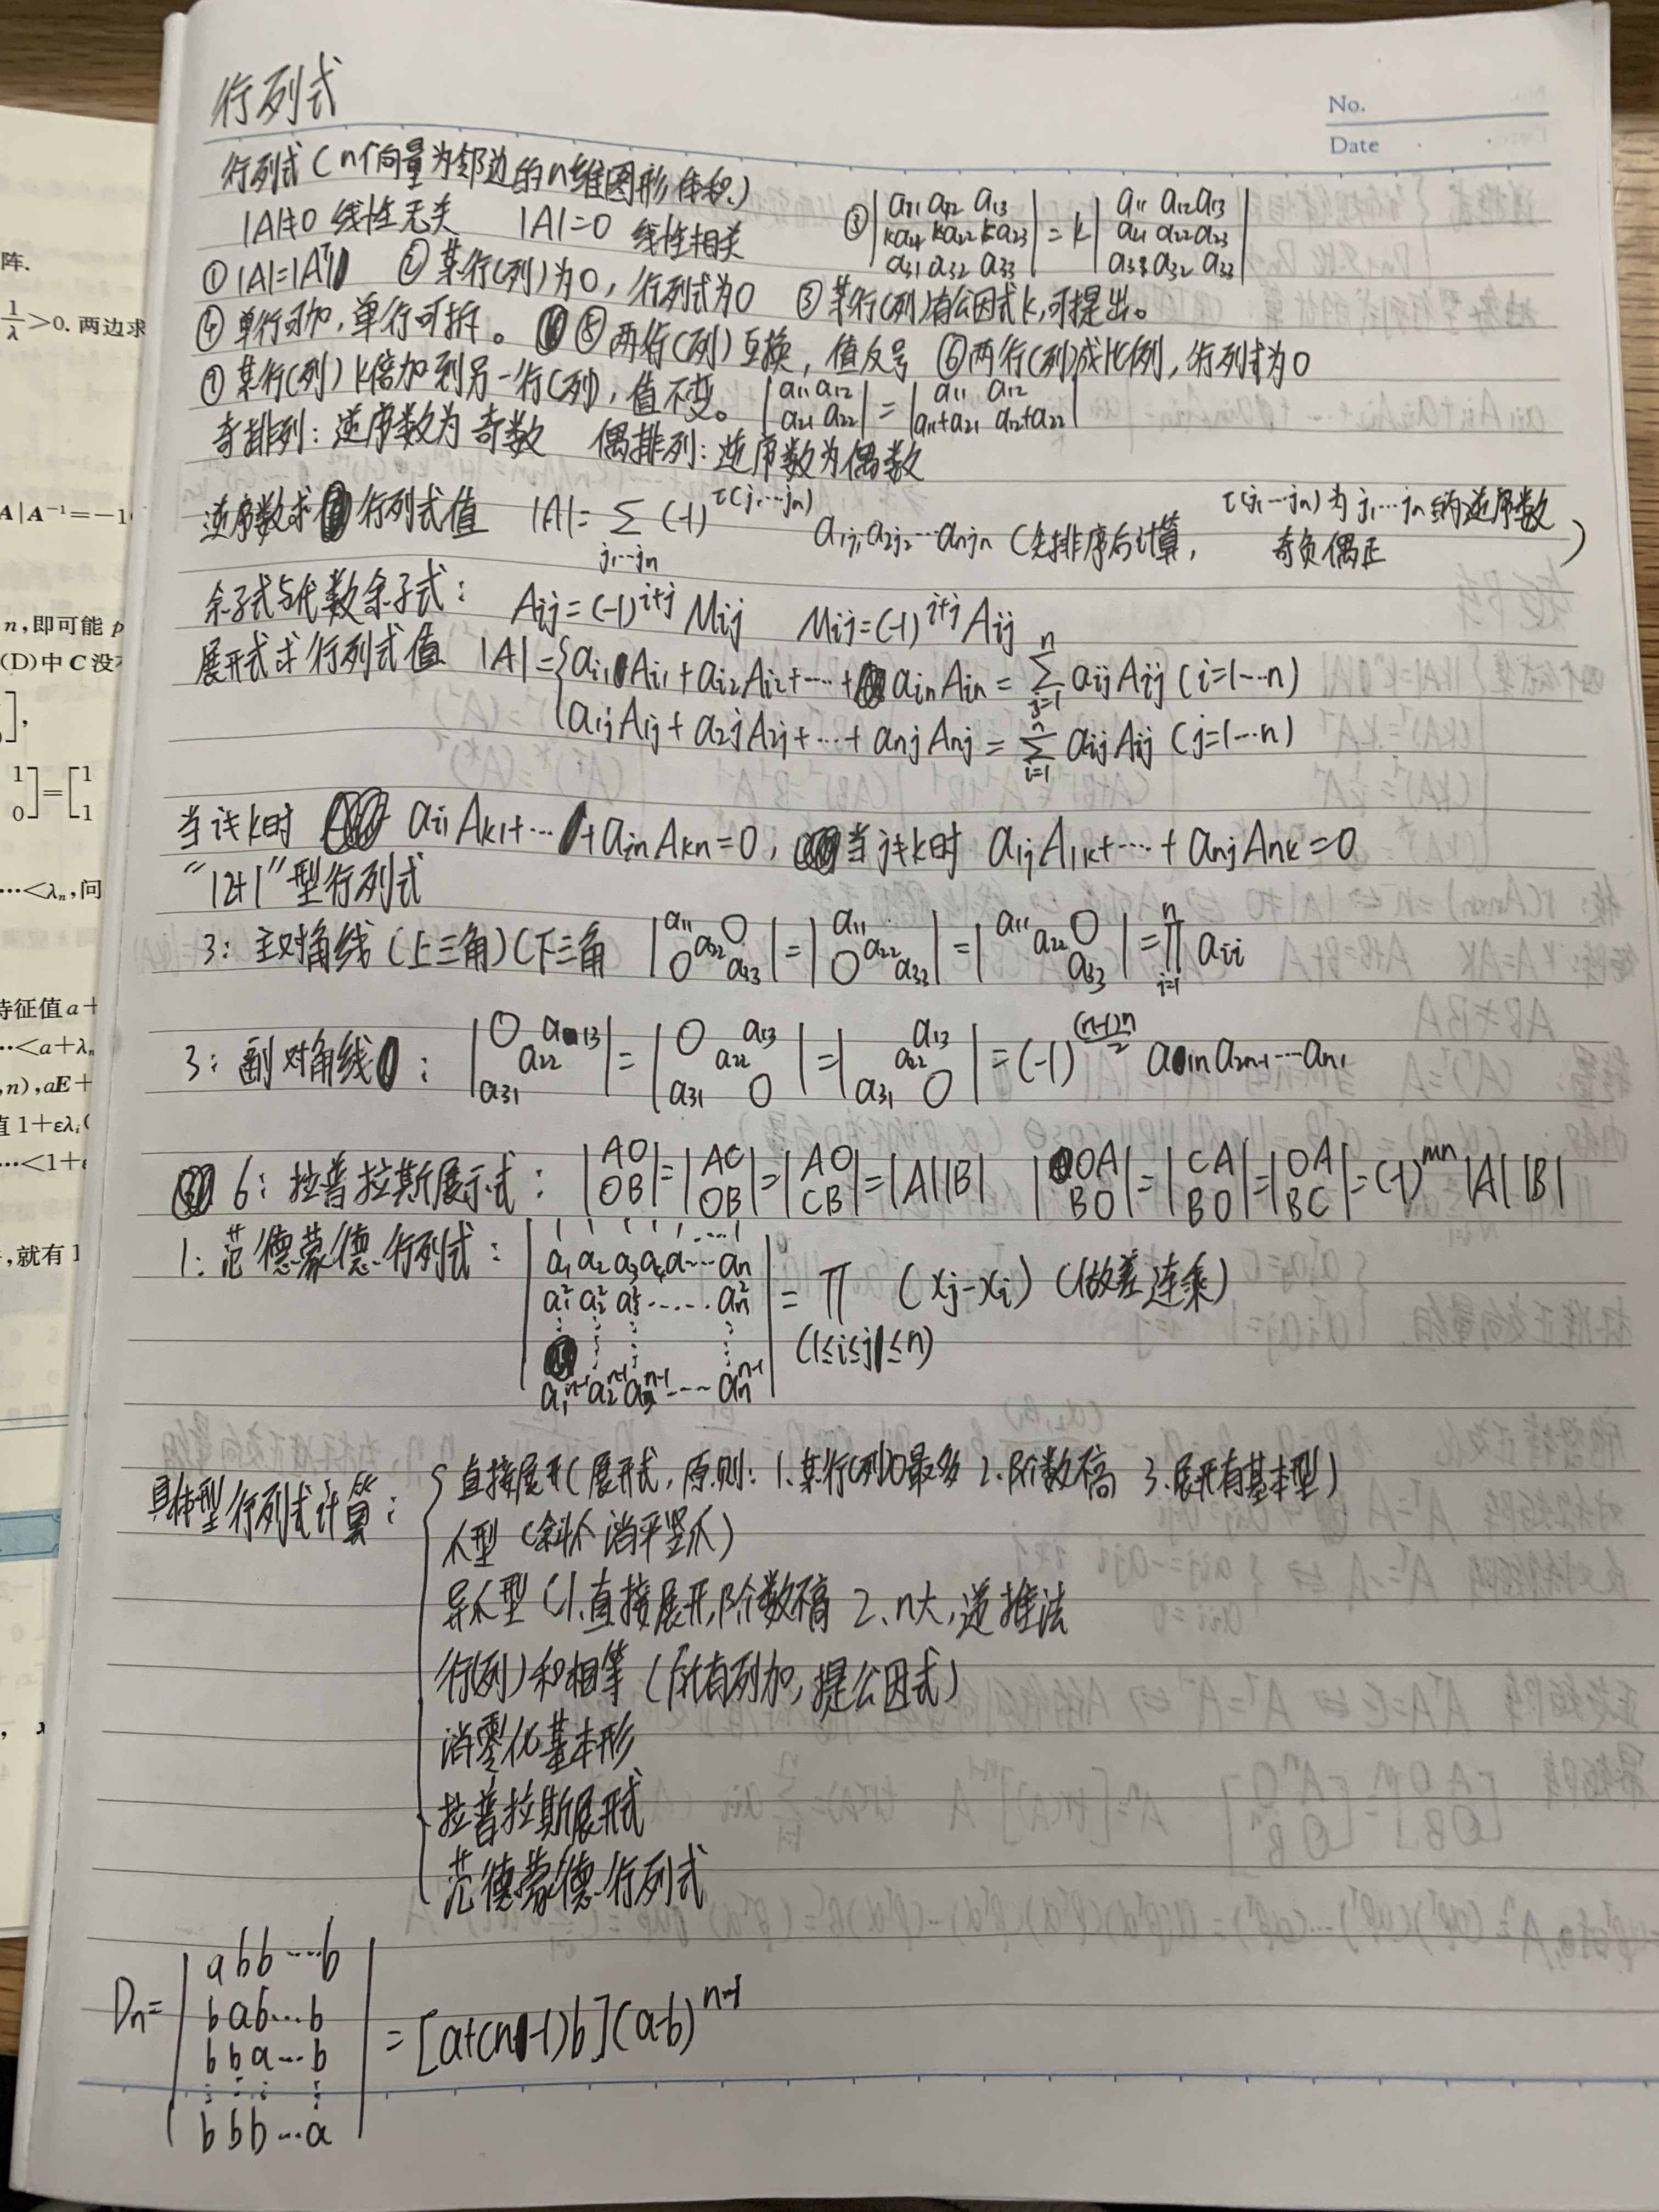 行列式
No.
Date
行列式(n个向量为邻边的n维图形体积)
|A|≠0 线性无关 |A|=0 线性相关
③ |a11 a12 a13; ka21 ka22 ka23; a31 a32 a33| = k |a11 a12 a13; a21 a22 a23; a31 a32 a33|
①|A|=|Aᵀ| ②某行(列)为0,行列式为0 ③某行(列)有公因式k,可提出。
④单行可加,单行可拆。 ⑤两行(列)互换,值反号 ⑥两行(列)成比例,行列式为0
⑦某行(列)k倍加到另一行(列),值不变。 |a11 a12; a21 a22| = |a11 a12; a11+a21 a12+a22|
奇排列:逆序数为奇数 偶排列:逆序数为偶数
逆序数求行列式值 |A|=∑(j1…jn) (-1)^τ(j1…jn) a1j1 a2j2…anjn (先排序后计算, τ(j1…jn)为j1…jn的逆序数 奇负偶正)
余子式与代数余子式: Aij=(-1)^(i+j) Mij Mij=(-1)^(i+j) Aij
展开式求行列式值 |A|={ ai1Ai1+ai2Ai2+…+ainAin=∑(j=1→n) aijAij (i=1…n)
a1jA1j+a2jA2j+…+anjAnj=∑(i=1→n) aijAij (j=1…n)
当i≠k时 ai1Ak1+…+ainAkn=0, 当j≠k时 a1jA1k+…+anjAnk=0
“12+1”型行列式
3: 主对角线(上三角)(下三角 |a11 O; a22; O a33| = |a11; a22; O a33| = |a11 O; a22; a33| = ∏(i=1→n) aii
3: 副对角线: |O a13; a22; a31| = |O a13; a22; a31 O| = |a13; a22; a31 O| = (-1)^((n-1)n/2) a1n a2n-1…an1
6: 拉普拉斯展示式: |A O; O B| = |A C; O B| = |A O; C B| = |A||B| |O A; B O| = |C A; B O| = |O A; B C| = (-1)^mn |A||B|
1: 范德蒙德行列式: |1 1 1 1 1 … 1; a1 a2 a3 a4 a … an; a1² a2² a3² …… an²; ⋮ ⋮ ⋮ ⋮; a1^(n-1) a2^(n-1) a3^(n-1) …… an^(n-1)| = ∏ (xj-xi) (做差连乘)
(1≤i≤j≤n)
具体型行列式计算: { 直接展开(展开式,原则: 1.某行(列)0最多 2.阶数不高 3.展开有基本型)
爪型 (斜爪消平竖爪)
异爪型 (1.直接展开,阶数不高 2.n大,递推法
行(列)和相等(所有列加,提公因式)
消零化基本形
拉普拉斯展开式
范德蒙德行列式
Dn= |a b b … b; b a b … b; b b a … b; ⋮ ⋮ ⋮ ⋮; b b b … a| = [a+(n-1)b](a-b)^(n-1)
阵.
1/λ>0. 两边求
A|A⁻¹=-1
n,即可能 p
(D)中 C 没
…<λn,问
特征值 a+
…<a+λn
,n),aE+
值 1+ελi(
…<1+ε
,就有 1